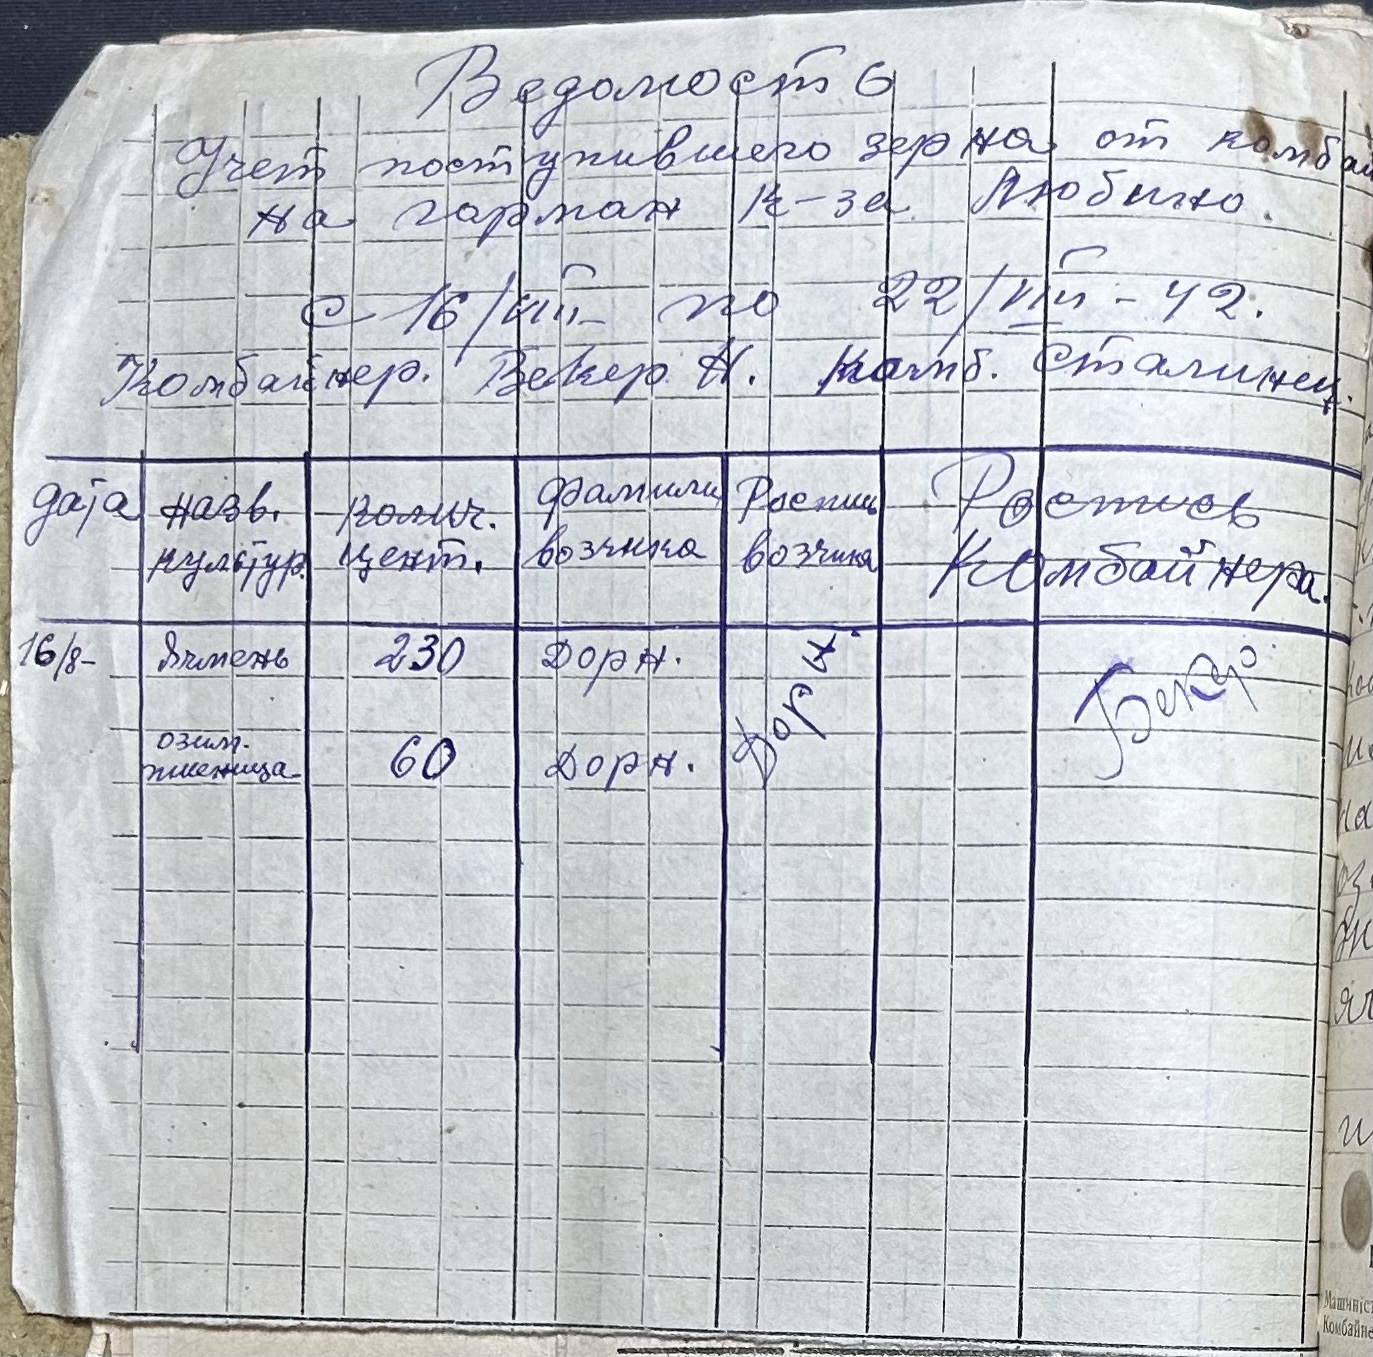 Ведомость
Учет поступившего зерна от комбай
на гарман к-за Любино.
с 16/VIII- по 22/VIII - 42.
Комбайнер. Векер Н. Комб. Сталинец.
дата назв. культур. колич. цент. фамилии возчика Роспис возчика Роспись Комбайнера.
16/8- Ячмень 230 Дорн. Дорн. Бекер
озим. пшеница 60 Дорн.
Машиніст
Комбайне